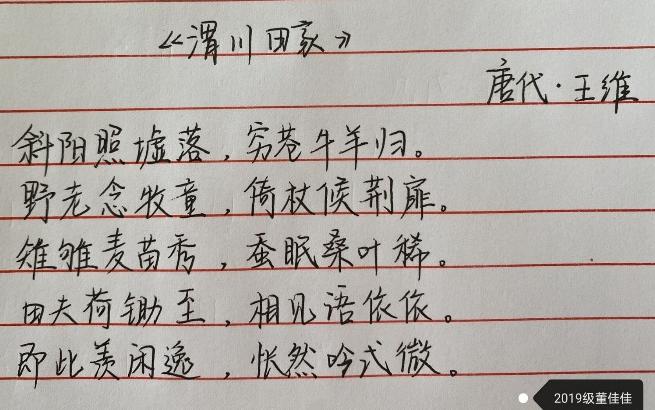 《渭川田家》
唐代·王维
斜阳照墟落，穷巷牛羊归。
野老念牧童，倚杖候荆扉。
雉雊麦苗秀，蚕眠桑叶稀。
田夫荷锄至，相见语依依。
即此羡闲逸，怅然吟式微。
2019级董佳佳